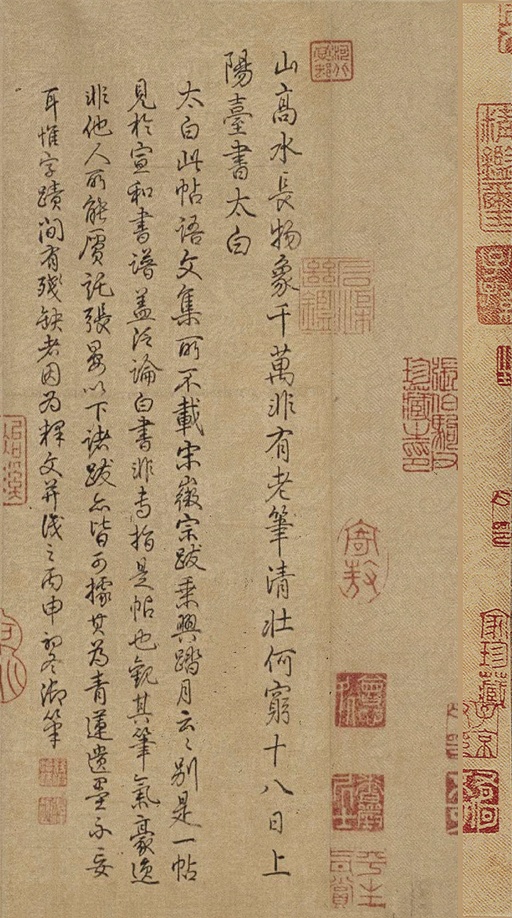 山高水長物象千萬非有老筆清壯何窮十八日上
陽臺書太白
太白此帖語文集所不載宋徽宗跋乘興踏月云云別是一帖
見於宣和書譜蓋泛論白書非專指是帖也觀其筆氣豪逸
非他人所能贋託張晏以下諸跋亦皆可據其為青蓮遺墨不妄
耳惟字蹟間有殘缺者因為釋文并識之丙申初冬御筆
張伯駒
珍藏印